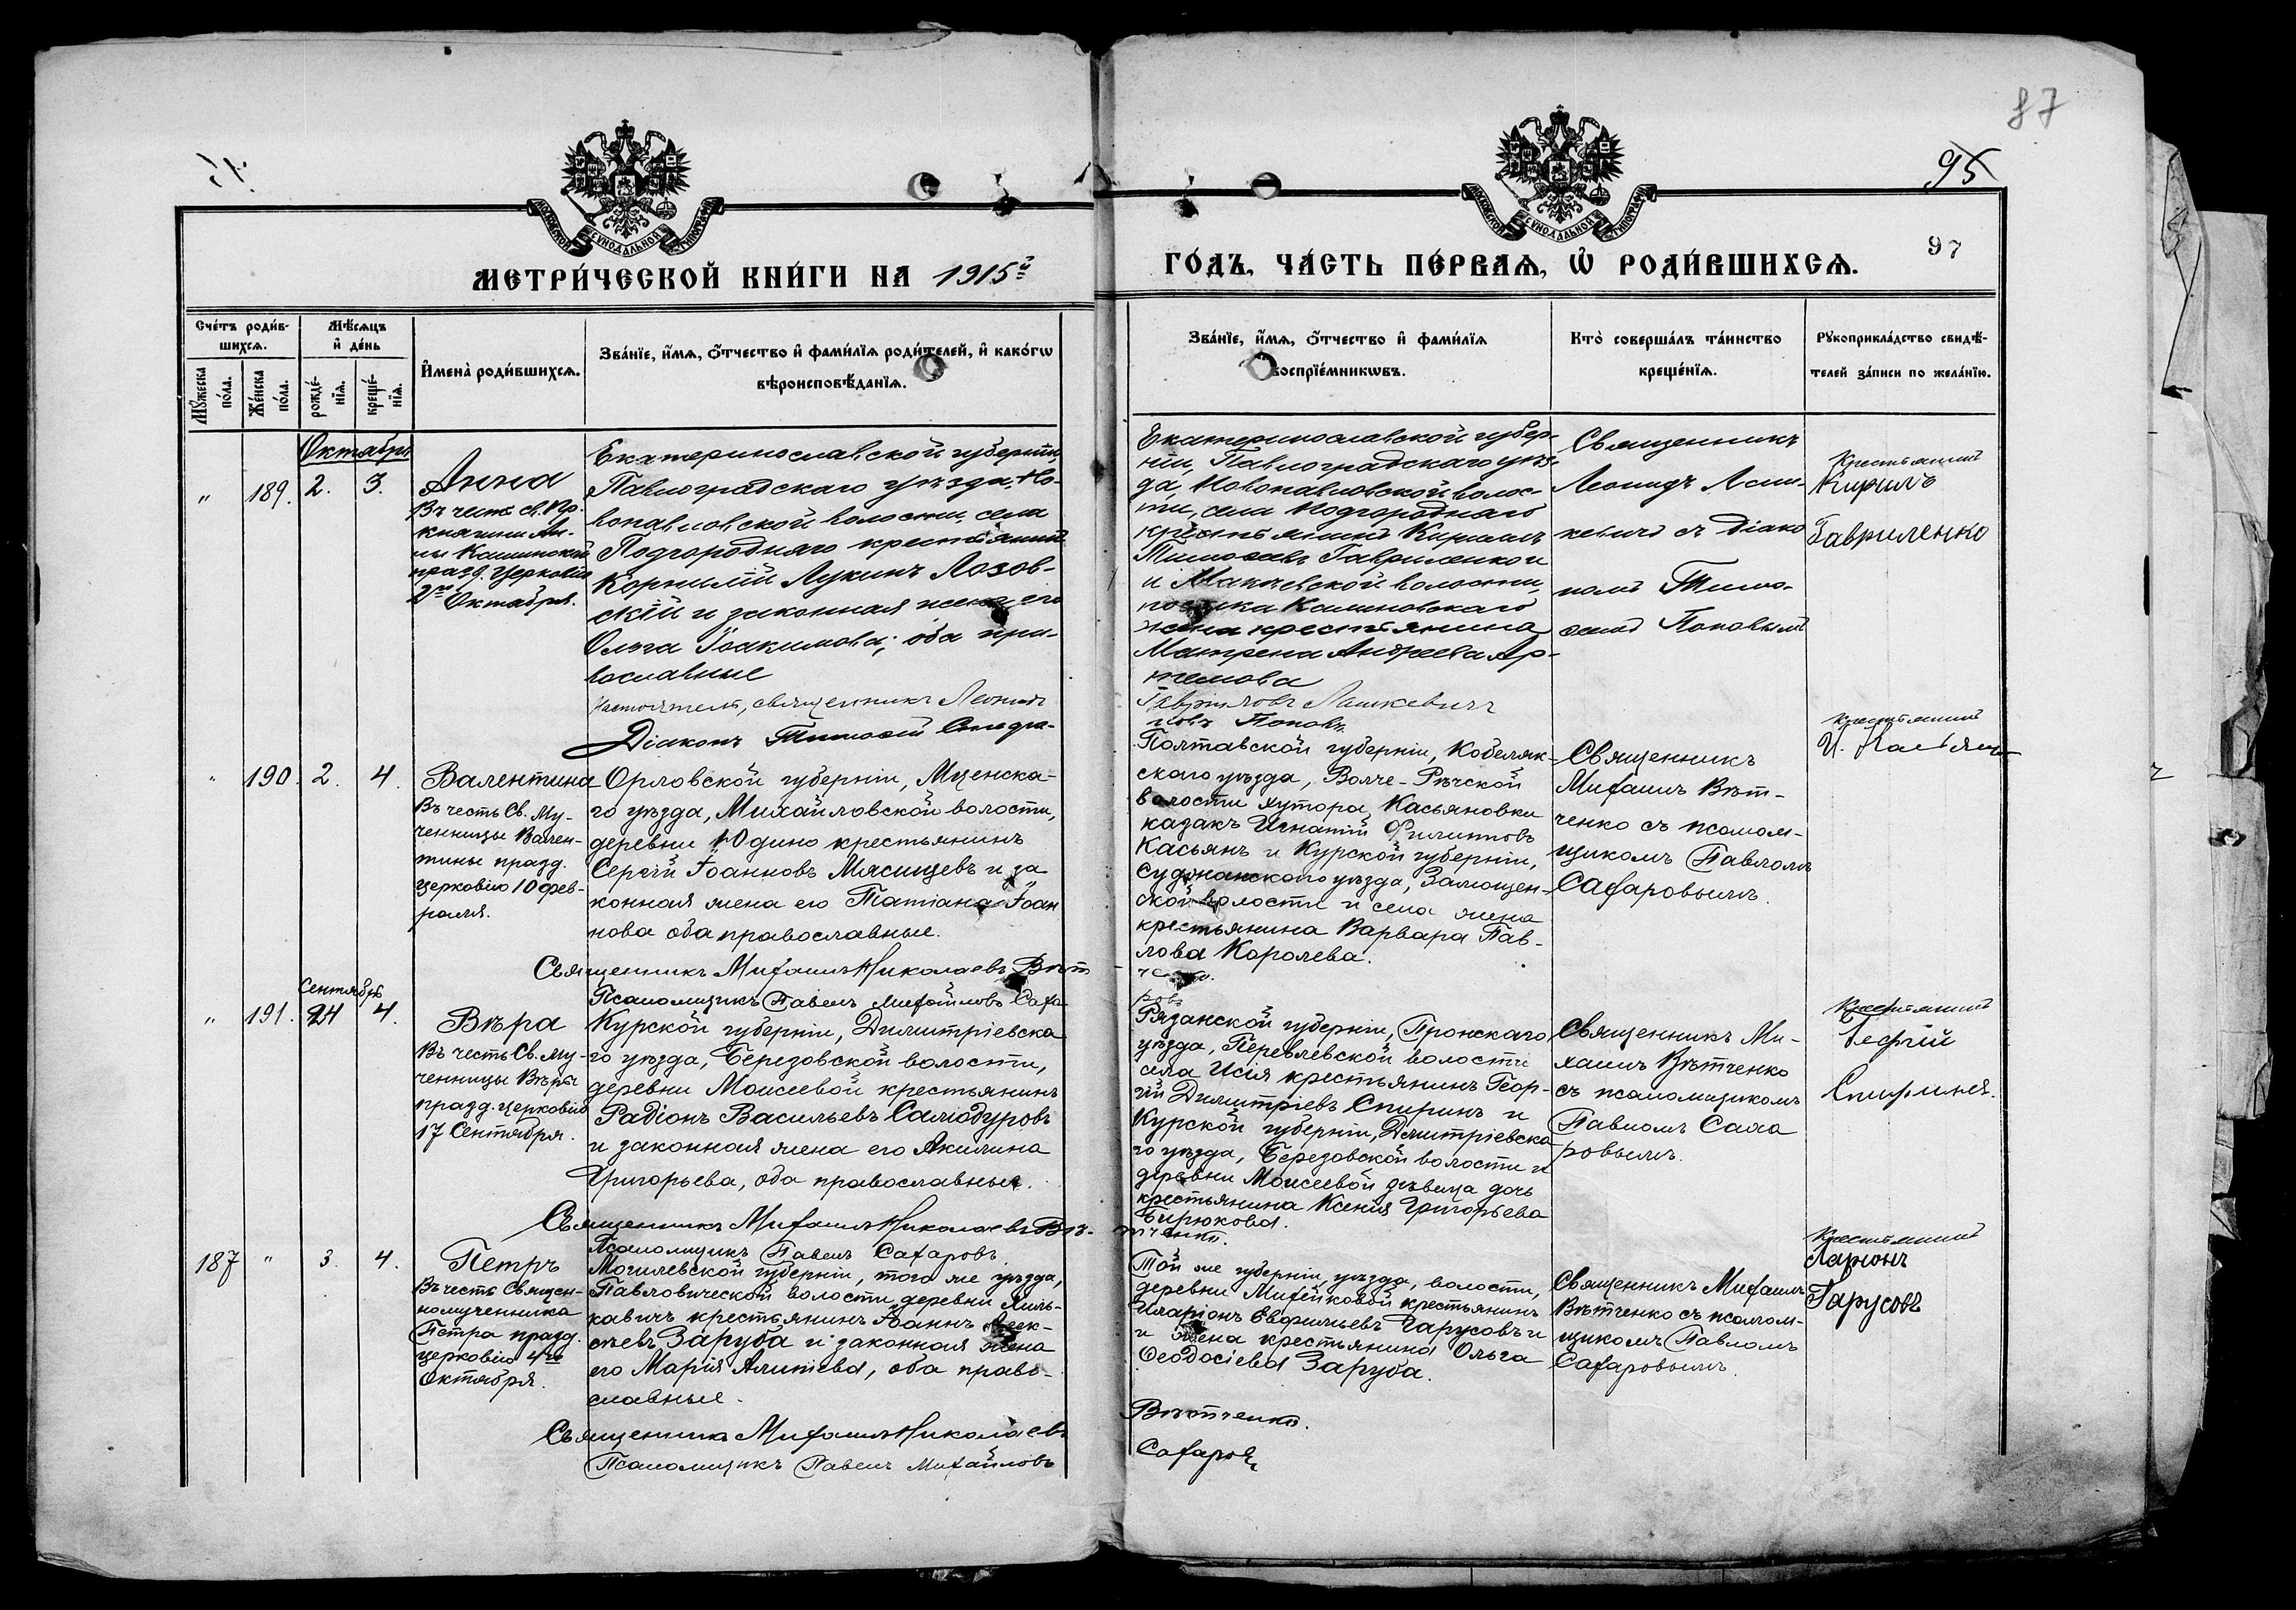 87
95
97
МОСКОВСКОЙ СѴНОДАЛЬНОЙ ТИПОГРАФІИ
МОСКОВСКОЙ СѴНОДАЛЬНОЙ ТИПОГРАФІИ
МЕТРИ́ЧЕСКОЙ КНИ́ГИ НА 1915й
ГО́ДЪ, ЧА́СТЬ ПЕ́РВАѦ, Ѽ РОДИ́ВШИХСѦ.
Сче́тъ роди́в-
шихсѧ.
Мꙋ́жеска
по́ла.
Же́нска
по́ла.
Мѣ́сѧцъ
и҆ де́нь
рожде́-
нїѧ.
креще́-
нїѧ.
И҆мена̀ роди́вшихсѧ.
Зва́нїе, и҆́мѧ, ѻ҆́тчество и҆ фами́лїѧ роди́телей, и҆ како́гѡ
вѣроисповѣ́данїѧ.
Зва́нїе, и҆́мѧ, ѻ҆́тчество и҆ фами́лїѧ
воспрїе́мникѡвъ.
Кто̀ соверша́лъ та́инство
креще́нїѧ.
Рꙋкоприкла́дство свидѣ́-
телей за́писи по жела́нїю.
Октябрь
" 189. 2. 3.
Анна
Въ честь св. бл.
княгини Ан-
ны Кашинской
празд. церковію
2го Октября.
Екатеринославской губерніи,
Павлоградскаго уѣзда, Но-
вопавловской волости, села
Подгородняго крестьянинъ
Корнилій Лукинъ Лозов-
скій и законная жена его
Ольга Іоакимова; оба пра-
вославные
Настоятель, священникъ Леонидъ
Діаконъ Тимоѳей
Екатеринославской губер-
ніи, Павлоградскаго уѣз-
да, Новопавловской волос-
ти, села Подгородняго
крестьянинъ Кириллъ
Тимоѳеевъ Гавриленко и
и волости,
поселка Калиновскаго
жена крестьянина
Матрена Андреева Ар-
темова
Гавріиловъ Лашкевичъ
новъ Поповъ.
Священникъ
Леонидъ Лаш-
кевичъ съ діако
номъ Тимо-
ѳеемъ Поповымъ
Крестьянинъ
Кирилъ
Гавриленко
" 190. 2. 4.
Валентина
Въ честь Св. Му-
ченницы Вален-
тины празд.
церковію 10 фев-
раля.
Орловской губерніи, Мценска-
го уѣзда, Михайловской волости,
деревни Юдино крестьянинъ
Сергій Іоанновъ Мясищевъ и за
конная жена его Татіана Іоан
нова оба православные.
Священникъ Михаилъ Николаевъ Вѣт
Псаломщикъ Павелъ Михайловъ Сафа
Полтавской губерніи, Кобеляк-
скаго уѣзда, Волче-Рѣчской
волости хутора Касьяновки
казакъ Игнатій Филипповъ
Касьянъ и Курской губерніи,
Суджанскаго уѣзда, Замощен-
ской волости и села жена
крестьянина Варвара Пав-
лова Королева.
ченко.
ровъ
Священникъ
Михаилъ Вѣт-
ченко съ псалом-
щикомъ Павломъ
Сафаровымъ.
Крестьянинъ
И. Касьянъ
Сентябрь
" 191. 24 4.
Вѣра
Въ честь Св. му-
ченницы Вѣры
празд. церковію
17 Сентября.
Курской губерніи, Димитріевска
го уѣзда, Березовской волости,
деревни Моисеевой крестьянинъ
Радіонъ Васильевъ Самодуровъ
и законная жена его Акилина
Григорьева, оба православные.
Священникъ Михаилъ Николаевъ Вѣт-
Псаломщикъ Павелъ Сафаровъ.
Рязанской губерніи, Пронскаго
уѣзда, Перевлевской волости
села Исья крестьянинъ Геор-
гій Димитріевъ Спиринъ и
Курской губерніи, Дмитріевска
го уѣзда, Березовской волости и
деревни Моисеевой дѣвица дочь
крестьянина Ксенія Григорьева
Бирюкова.
ченко.
Священникъ Ми-
хаилъ Вѣтченко
съ псаломщикомъ
Павломъ Сафа
ровымъ.
Крестьянинъ
Георгій
Спиринъ.
187 " 3. 4.
Петръ
Въ честь Священ-
номученника
Петра празд.
церковію 4го
Октября.
Могилевской губерніи, того же уѣзда,
Павловической волости, деревни Хиль-
кавичъ крестьянинъ Іоаннъ Алек-
сѣевъ Заруба и законная жена
его Марія Алипіева, оба право-
славные.
Священникъ Михаилъ Николаевъ
Псаломщикъ Павелъ Михайловъ
Той же губерніи, уѣзда, волости,
деревни Михейковой крестьянинъ
Иларіонъ Евфимьевъ Гарусовъ и
и жена крестьянина Ольга
Ѳеодосіева Заруба.
Вѣтченко.
Сафаровъ
Священникъ Михаилъ
Вѣтченко съ псалом-
щикомъ Павломъ
Сафаровымъ.
Крестьянинъ
Ларіонъ
Гарусовъ